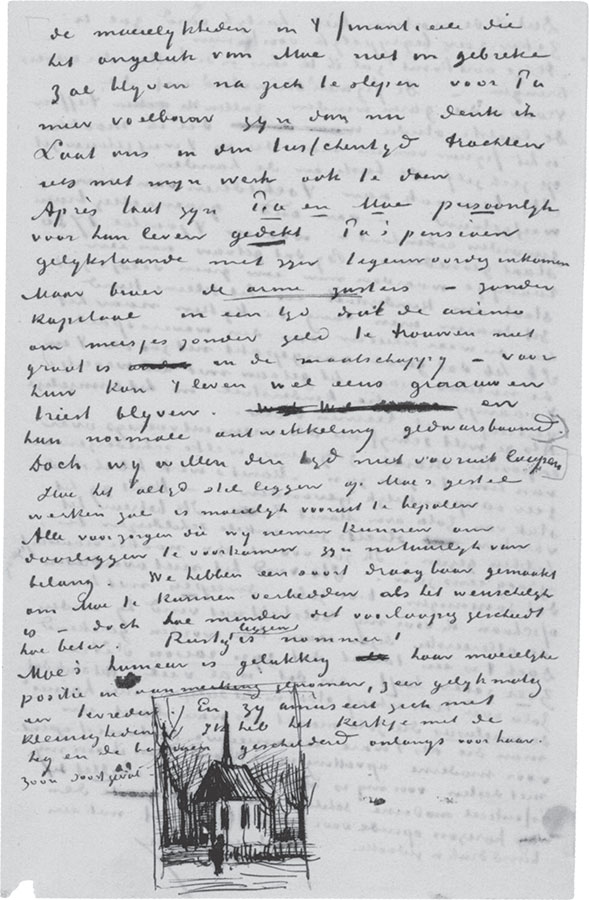 de moeielykheden in 't finantieele die
het ongeluk van Moe niet in gebreke
zal blyven na zich te slepen voor Pa
meer voelbaar zyn dan nu denk ik
Laat ons in den tusschentyd trachten
iets met myn werk ook te doen
Après tout zyn Pa en Moe persoonlyk
voor hun leven gedekt Pa's pensioen
gelykstaande met zyn tegenwoordig inkomen
Maar broer de arme zusters – zonder
kapitaal in een tyd dat de animo
om meisjes zonder geld te trouwen niet
groot is in de maatschappy – voor
hun kan 't leven wel eens graauw en
triest blyven. en
hun normale ontwikkeling gedwarsboomd
Doch wy willen den tyd niet vooruit loopen
Hoe het altyd stil leggen op Moe's gestel
werken zal is moeielyk vooruit te bepalen
Alle voorzorgen die wy nemen kunnen om
doorleggen te voorkomen zyn natuurlyk van
belang. We hebben een soort draagbaar gemaakt
om Moe te kunnen verbedden als het wenschelyk
is – doch hoe minder dit voorloopig geschiedt
hoe beter. Rustig leggen is nommer 1
Moe's humeur is gelukkig haar moeielyke
positie in aanmerking genomen, zeer gelykmatig
en tevreden. En zy amuseert zich met
kleinigheden. Ik heb het kerkje met de
heg en de boomen geschilderd onlangs voor haar.
zoon soort geval